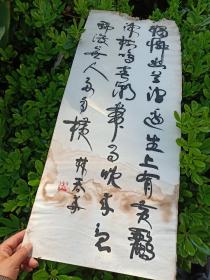 独怜幽草涧边生上有黄鹂
深树鸣春潮带雨晚来急
野渡无人舟自横